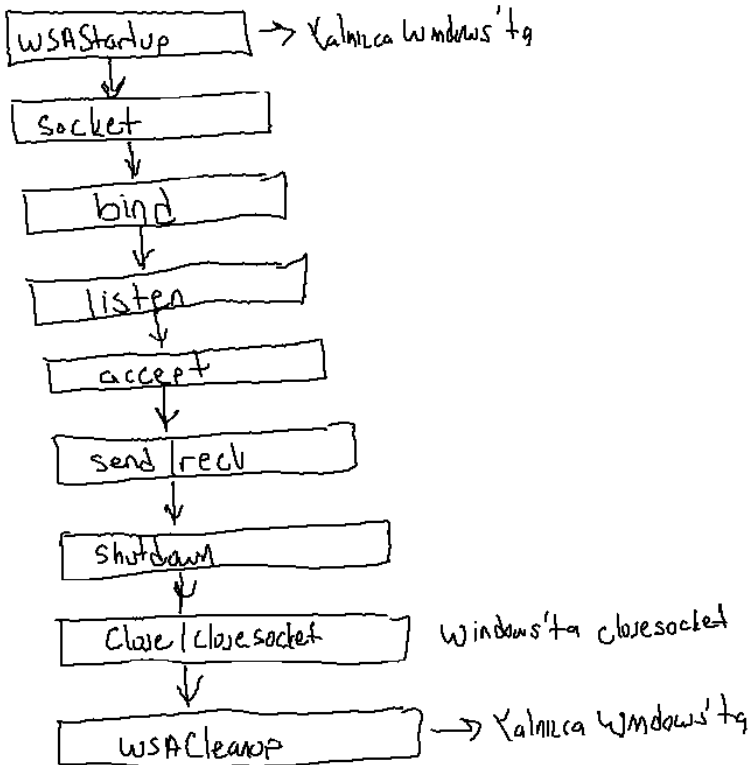 WSAStartup → Yalnızca Windows'ta
socket
bind
listen
accept
send | recv
shutdown
Close | closesocket Windows'ta closesocket
WSACleanup → Yalnızca Windows'ta